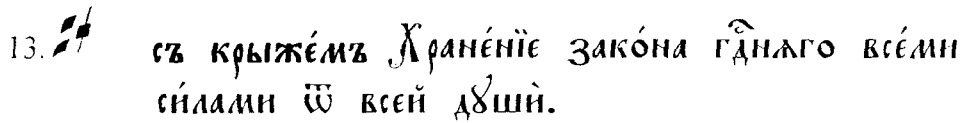 13. съ крыже́мъ Хране́нїе зако́на гдⷭ҇нѧго все́ми
си́лами ѿ всей дꙋшѝ.